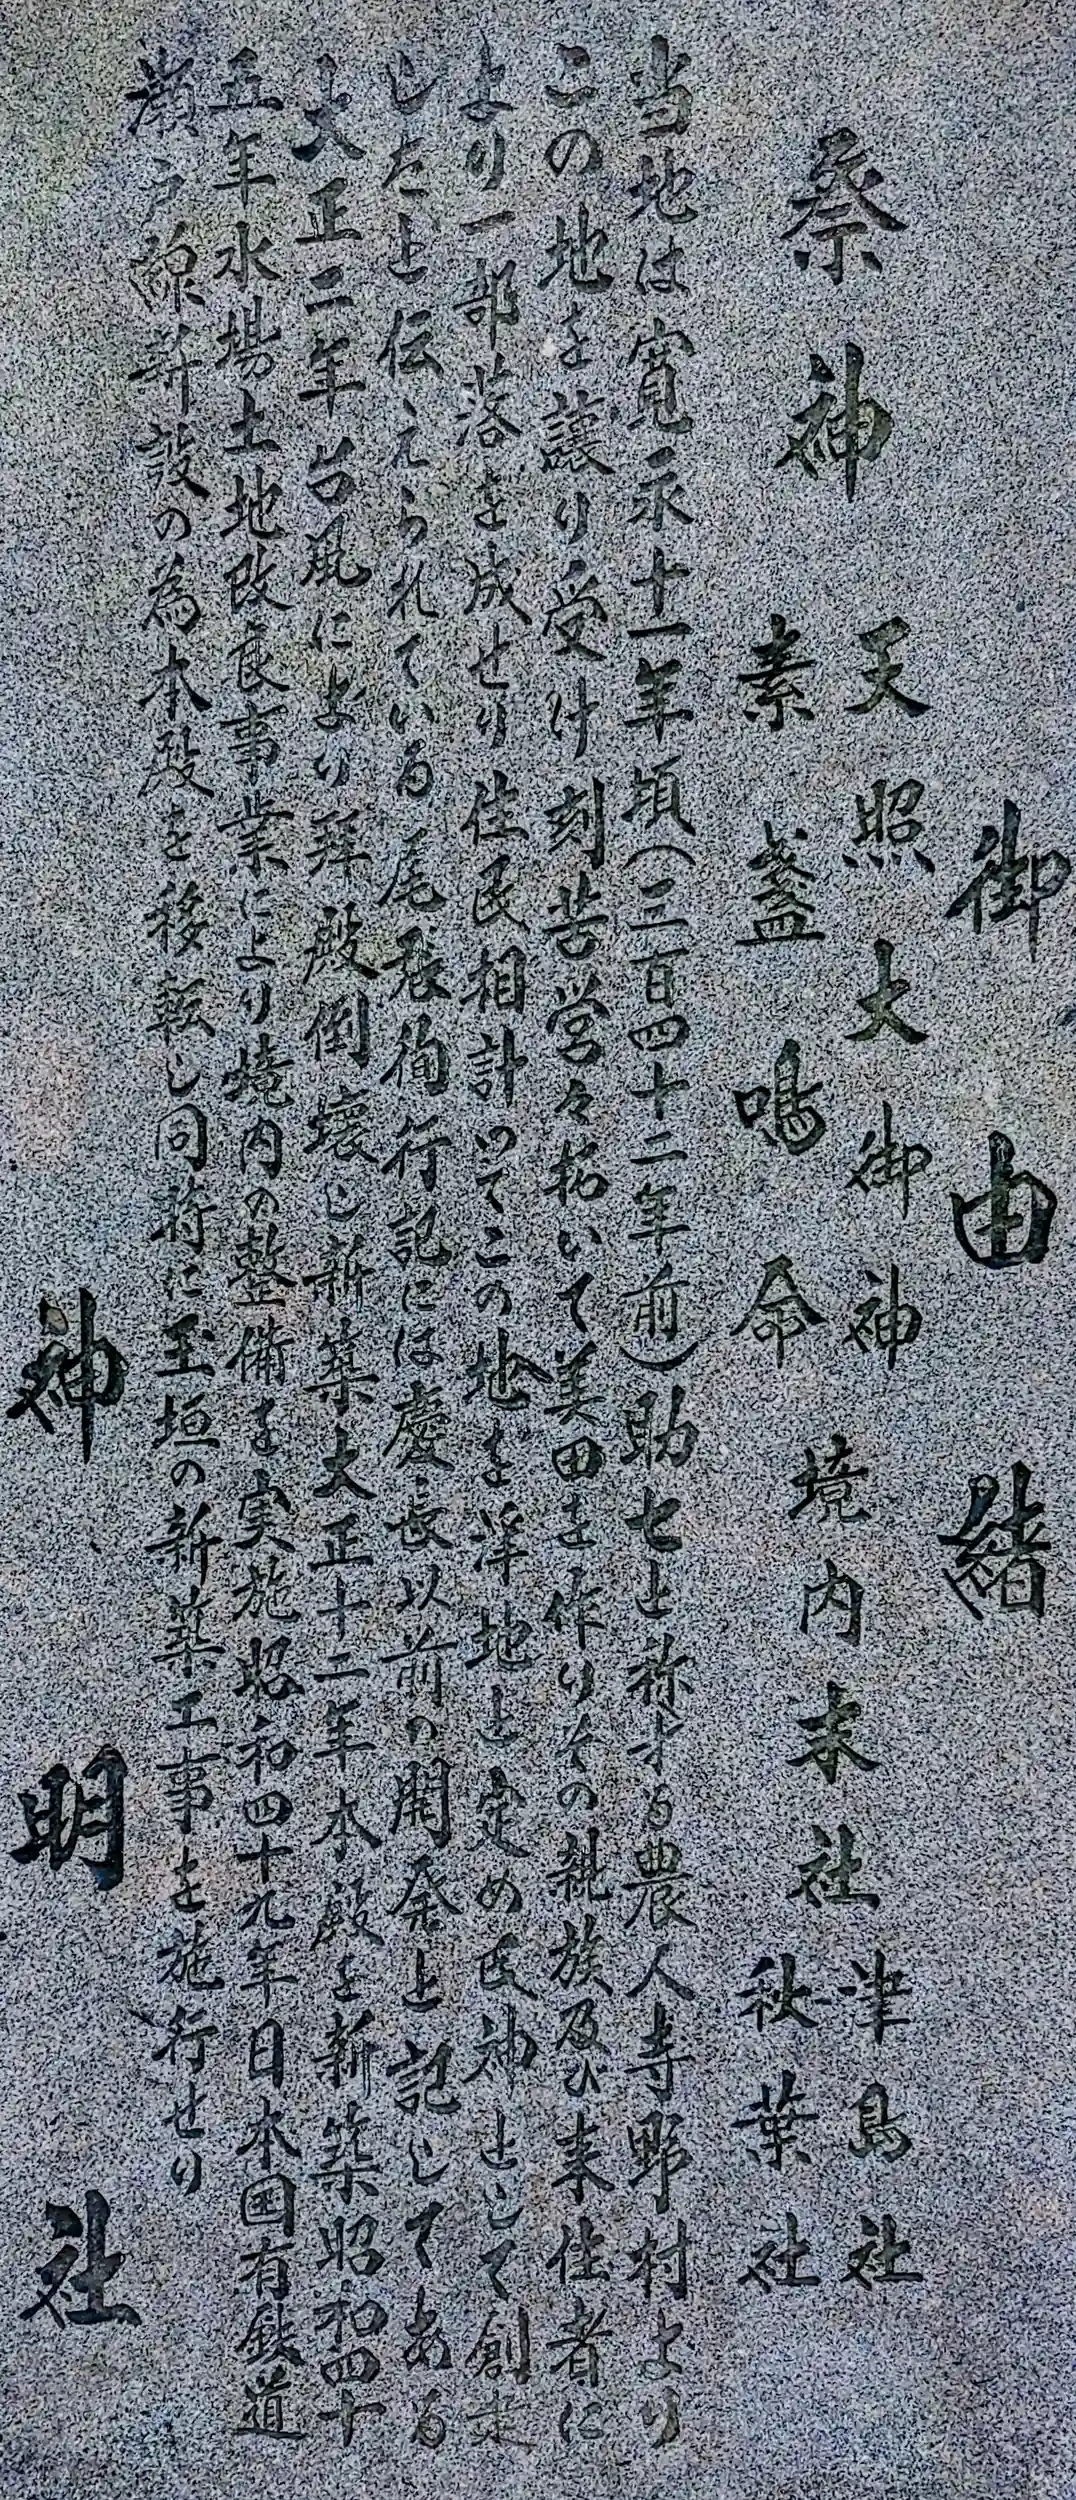 御由緒
祭神 天照大御神 境内末社 津島社
素盞嗚命 秋葉社
当地は寛永十一年頃(三百四十二年前)助七と称する農人寺野村より
この地を譲り受け刻苦営々拓いて美田を作りその親族及び来住者に
より一部落を成せり住民相計いてこの地を浄地と定め氏神として創
したと伝えられている尾張徇行記には慶長以前の開発と記してある
大正二年台風により拝殿倒壊し新築大正十二年本殿を新築昭和四十
五年水場土地改良事業により境内の整備を実施昭和四十九年日本国有鉄道
瀬戸線新設の為本殿を移転し同時に玉垣の新築工事を施行せり
神明社